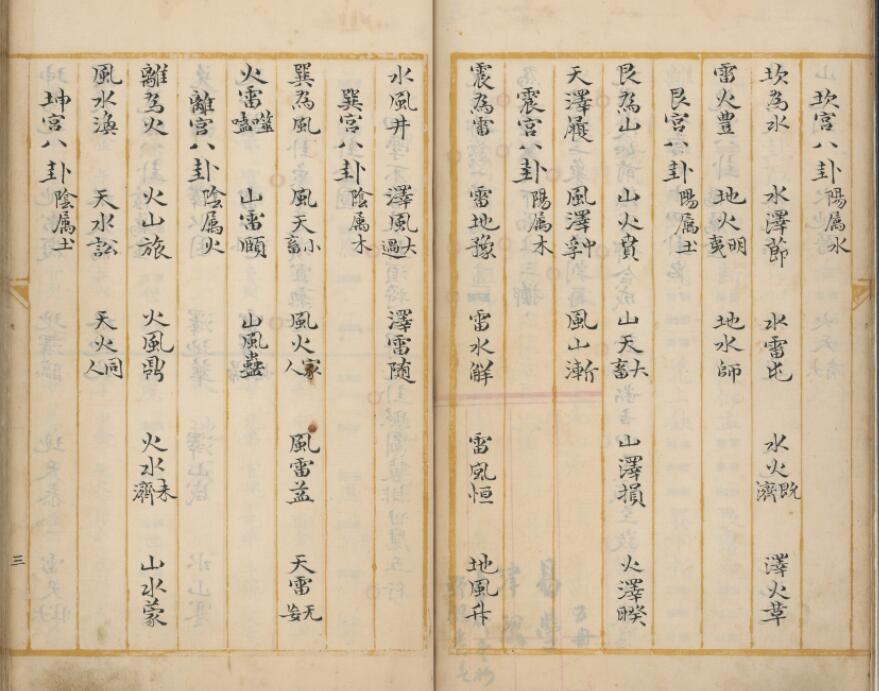 坎宮八卦陽属水
坎為水　水澤節　水雷屯　水火既濟　澤火革
雷火豊　地火明夷　地水師
艮宮八卦陽属土
艮為山　山火賁　山天大畜　山澤損　火澤睽
天澤履　風澤中孚　風山漸
震宮八卦陽属木
震為雷　雷地豫　雷水解　雷風恒　地風升
水風井　澤風大過　澤雷随
巽宮八卦陰属木
巽為風　風天小畜　風火家人　風雷益　天雷无妄
火雷噬嗑　山雷頤　山風蠱
離宮八卦陰属火
離為火　火山旅　火風鼎　火水未濟　山水蒙
風水渙　天水訟　天火同人
坤宮八卦陰属土
三